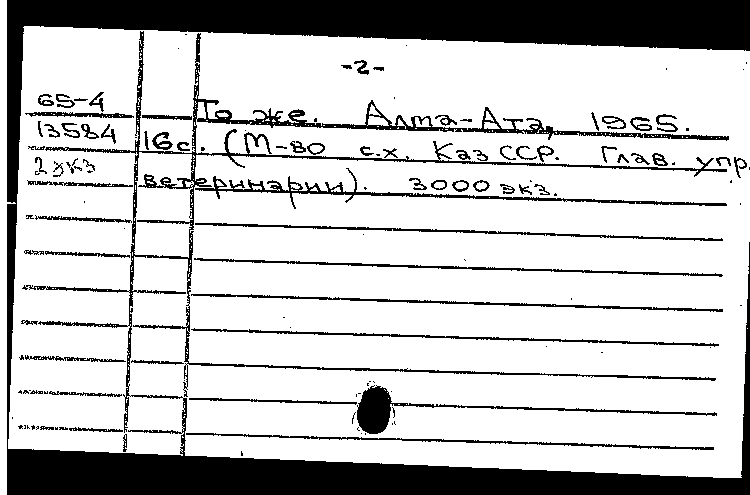 -2-
65-4 То же. Алма-Ата, 1965.
13584 16с. (М-во с.х. Каз ССР. Глав. упр.
2 экз ветеринарии). 3000 экз.